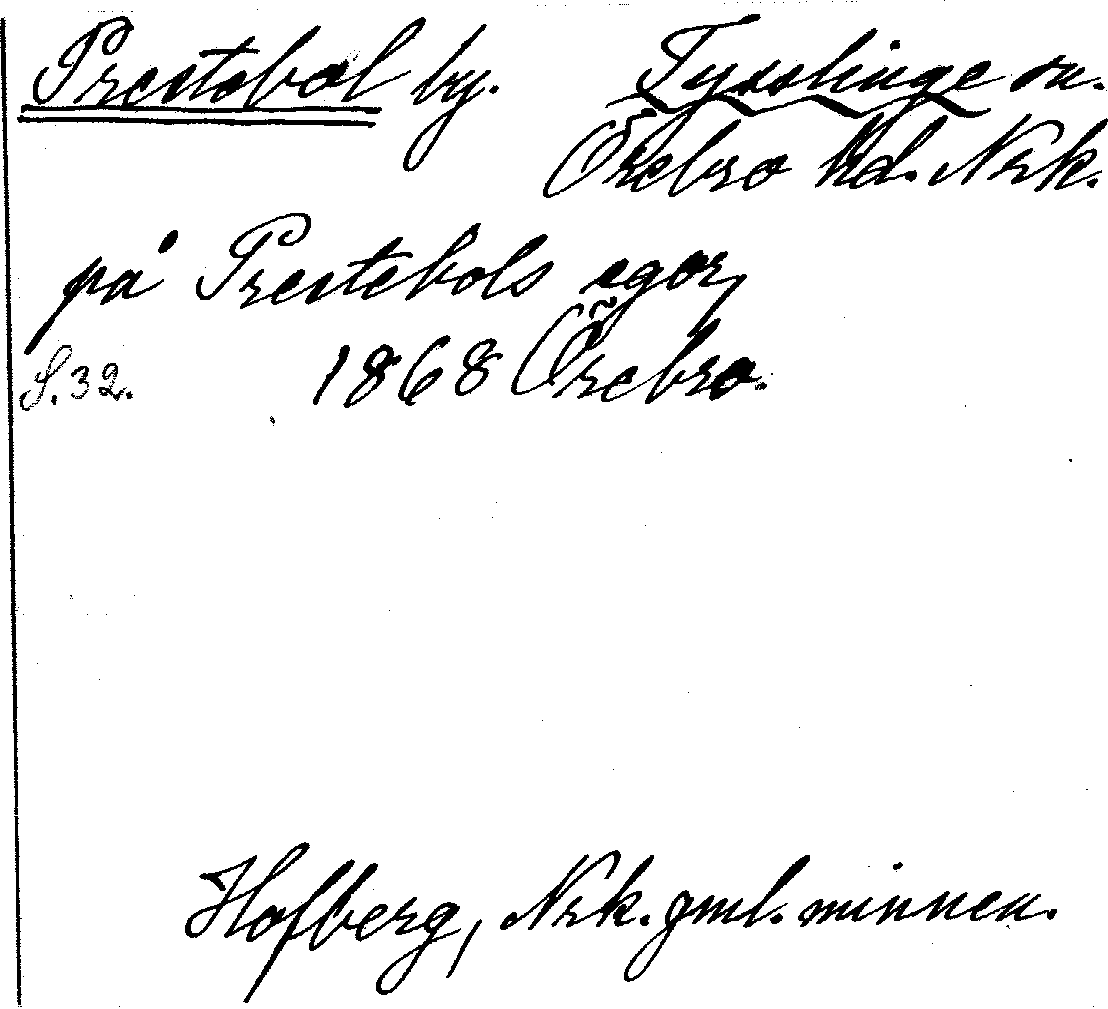 Prestebol by. Tysslinge sn.
Örebro hd. Nrk.
på Prestebols egor,
S. 32. 1868 Örebro.
Hofberg, Nrk. gml. minnen.